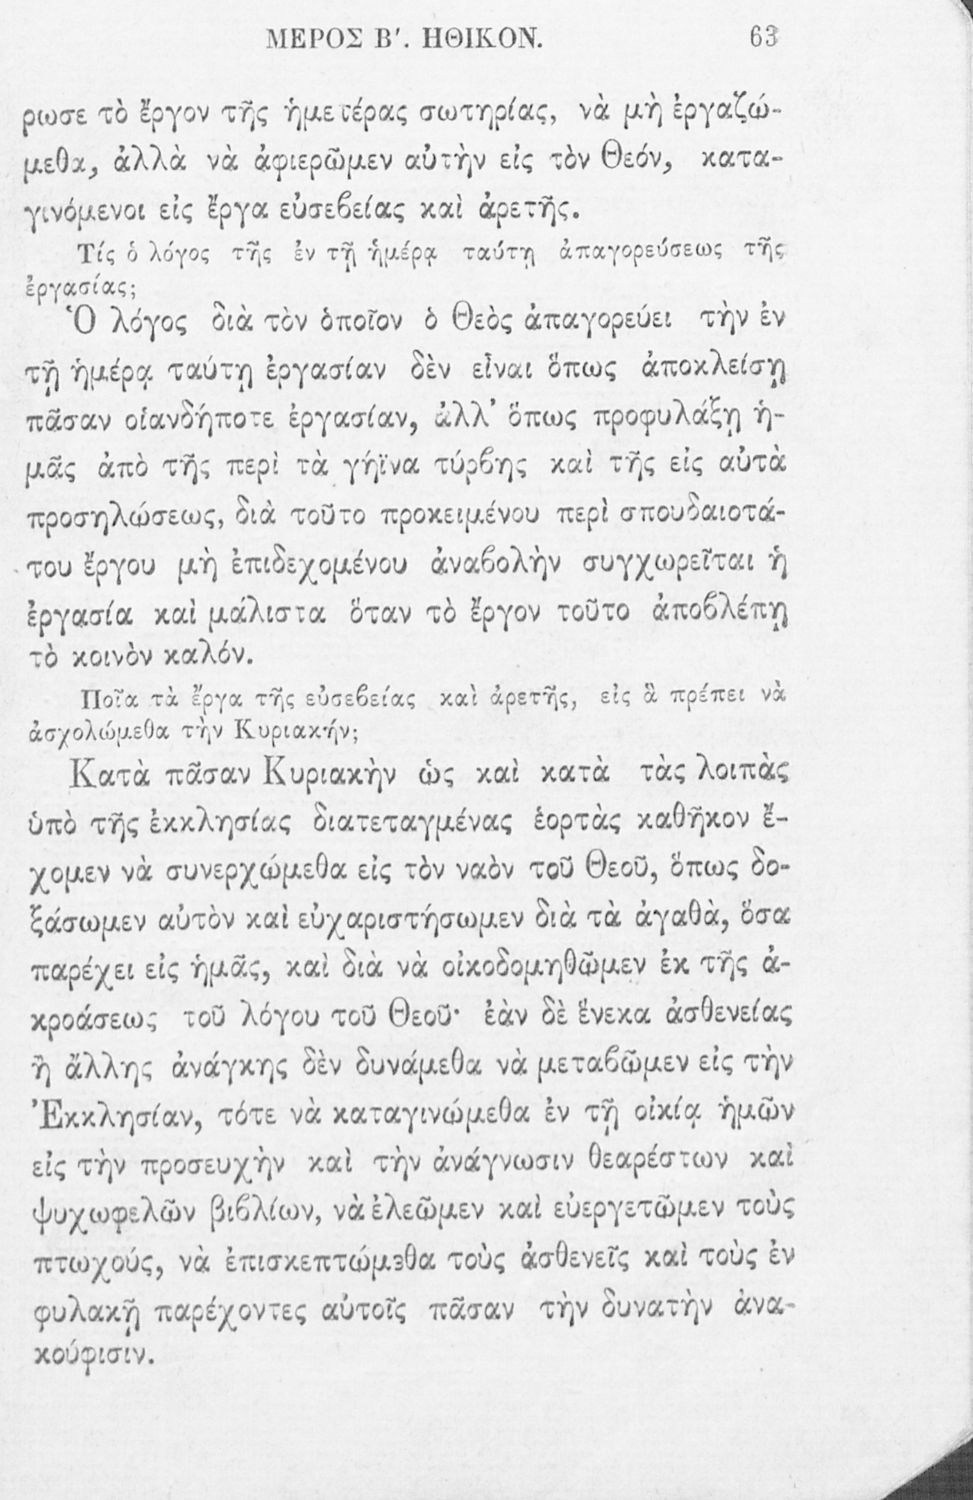 ΜΕΡΟΣ Β'. ΗΘΙΚΟΝ. 63
ρωσε τὸ ἔργον τῆς ἡμετέρας σωτηρίας, νὰ μὴ ἐργαζώ-
μεθα, ἀλλὰ νὰ ἀφιερῶμεν αὐτὴν εἰς τὸν Θεόν, κατα-
γινόμενοι εἰς ἔργα εὐσεβείας καὶ ἀρετῆς.
Τίς ὁ λόγος τῆς ἐν τῇ ἡμέρᾳ ταύτῃ ἀπαγορεύσεως τῆς
ἐργασίας;
Ὁ λόγος διὰ τὸν ὁποῖον ὁ Θεὸς ἀπαγορεύει τὴν ἐν
τῇ ἡμέρᾳ ταύτῃ ἐργασίαν δὲν εἶναι ὅπως ἀποκλείσῃ
πᾶσαν οἱανδήποτε ἐργασίαν, ἀλλ' ὅπως προφυλάξῃ ἡ-
μᾶς ἀπὸ τῆς περὶ τὰ γήϊνα τύρβης καὶ τῆς εἰς αὐτὰ
προσηλώσεως, διὰ τοῦτο προκειμένου περὶ σπουδαιοτά-
του ἔργου μὴ ἐπιδεχομένου ἀναβολὴν συγχωρεῖται ἡ
ἐργασία καὶ μάλιστα ὅταν τὸ ἔργον τοῦτο ἀποβλέπῃ
τὸ κοινὸν καλόν.
Ποῖα τὰ ἔργα τῆς εὐσεβείας καὶ ἀρετῆς, εἰς ἃ πρέπει νὰ
ἀσχολώμεθα τὴν Κυριακήν;
Κατὰ πᾶσαν Κυριακὴν ὡς καὶ κατὰ τὰς λοιπὰς
ὑπὸ τῆς ἐκκλησίας διατεταγμένας ἑορτὰς καθῆκον ἔ-
χομεν νὰ συνερχώμεθα εἰς τὸν ναὸν τοῦ Θεοῦ, ὅπως δο-
ξάσωμεν αὐτὸν καὶ εὐχαριστήσωμεν διὰ τὰ ἀγαθὰ, ὅσα
παρέχει εἰς ἡμᾶς, καὶ διὰ νὰ οἰκοδομηθῶμεν ἐκ τῆς ἀ-
κροάσεως τοῦ λόγου τοῦ Θεοῦ· ἐὰν δὲ ἕνεκα ἀσθενείας
ἢ ἄλλης ἀνάγκης δὲν δυνάμεθα νὰ μεταβῶμεν εἰς τὴν
Ἐκκλησίαν, τότε νὰ καταγινώμεθα ἐν τῇ οἰκίᾳ ἡμῶν
εἰς τὴν προσευχὴν καὶ τὴν ἀνάγνωσιν θεαρέστων καὶ
ψυχωφελῶν βιβλίων, νὰ ἐλεῶμεν καὶ εὐεργετῶμεν τοὺς
πτωχούς, νὰ ἐπισκεπτώμεθα τοὺς ἀσθενεῖς καὶ τοὺς ἐν
φυλακῇ παρέχοντες αὐτοῖς πᾶσαν τὴν δυνατὴν ἀνα-
κούφισιν.